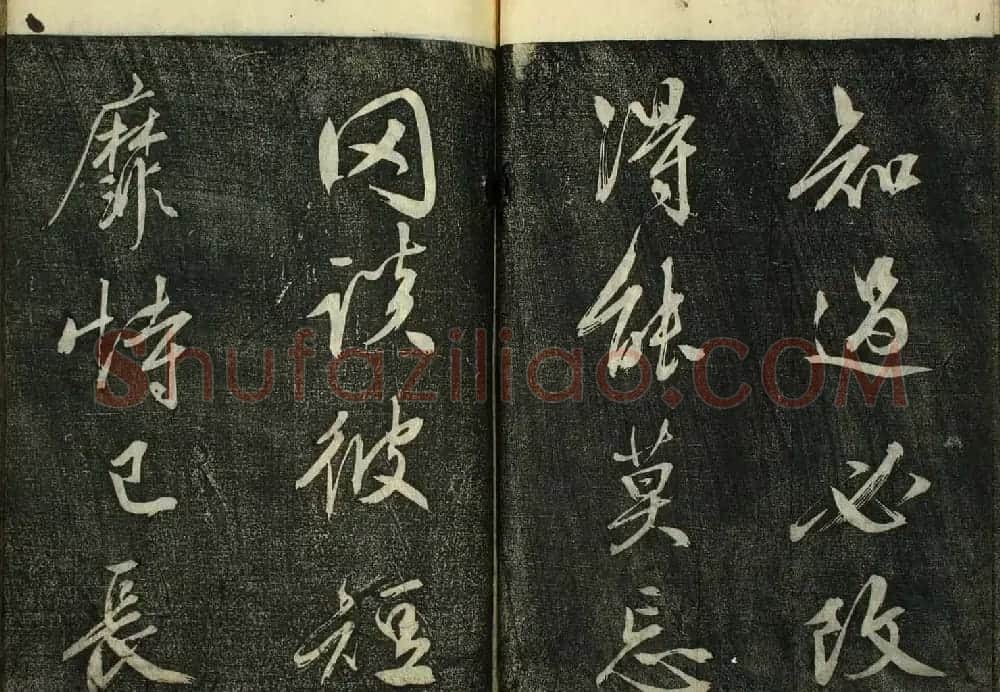 知過必改
得能莫忘
罔談彼短
靡恃己長
Shufaziliao.COM